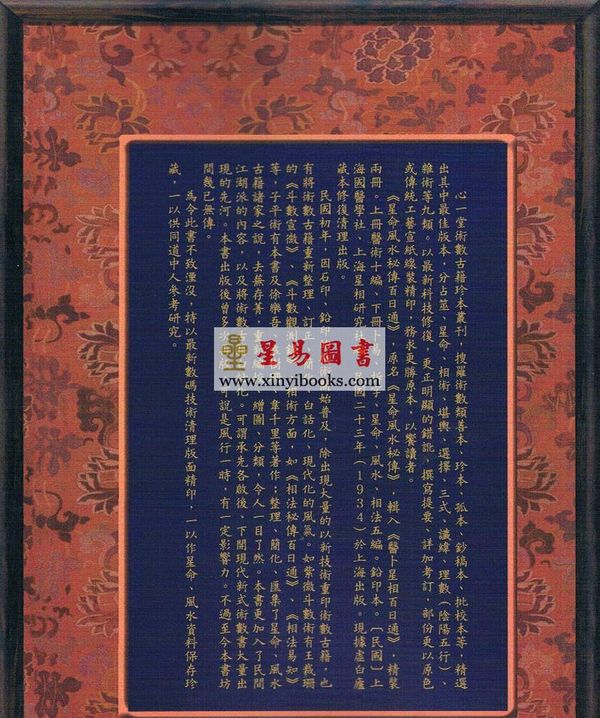 心一堂術數古籍珍本叢刊，搜羅術數類善本、珍本、孤本、鈔稿本、批校本等，精選
出其中最佳版本，分占筮、星命、相術、堪輿、選擇、三式、讖緯、理數（陰陽五行）、
雜術等九類。以最新科技修復，更正明顯的錯訛，撰寫提要、詳加考訂，部份更以原色
或傳統工藝宣紙線裝精印，務求更勝原本，以饗讀者。
《星命風水秘傳百日通》，原名《星命風水秘傳》，輯入《醫卜星相百日通》，精裝
兩冊。上冊醫術十編，下冊 星命、風水、相法五編。鉛印本。〔民國〕上
海國醫學社、上海星相研究 民國二十三年（1934）於上海出版。現據虛白廬
藏本修復清理出版。
民國初年，因石印、鉛印 術開始普及，除出現大量的以新技術重印術數古籍，也
有將術數古籍重新整理、訂正、 白話化、現代化的風氣。如紫微斗數術有王裁珊
的《斗數宣微》、《斗數觀測錄》 相術方面，如《相法秘傳百日通》、《相法易知》
等，子平術有本書及徐樂吾、 韋千里等著作，整理、簡化、匯集了星命、風水
古籍諸家之說，去蕪存菁，重 繪圖、分類，令人一目了然。本書更加入了民間
江湖派的內容，以及將術數古 化。可謂承先啟後，下開現代新式術數書大量出
現的先河。本書出版後曾多 可說是風行一時，有一定影響力。不過至今本書坊
間幾已無傳。
為令此書不致湮沒，特以最新數碼技術清理版面精印，一以作星命、風水資料保存珍
藏，一以供同道中人參考研究。
星易圖書
www.xinyibooks.com